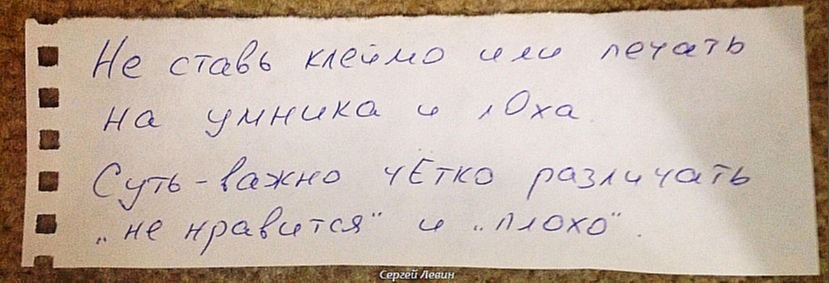 Не ставь клеймо или печать
на умника и лОха.
Суть - важно чЕтко различать
„не нравится" и „плохо".
Сергей Левин